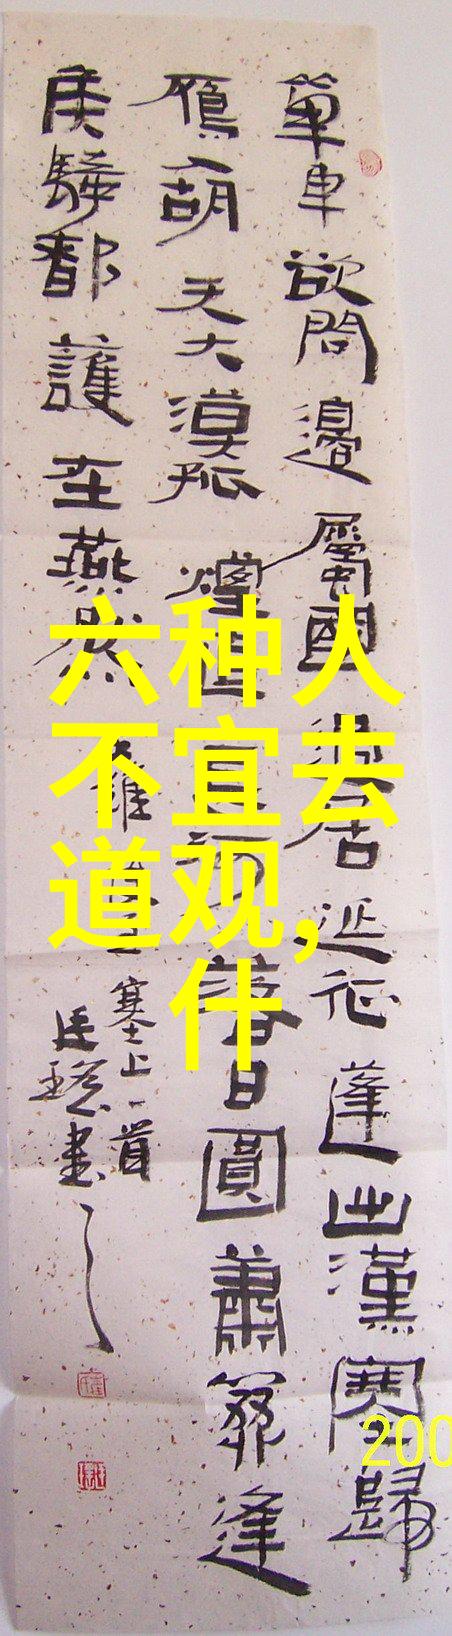 單車欲問邊屬國過居延征蓬出漢塞歸
鴈入胡天大漠孤煙直長河落日圓蕭關逢
候騎都護在燕然
王維使至塞上一首
書
六种人
不宜去
道观,
什
200